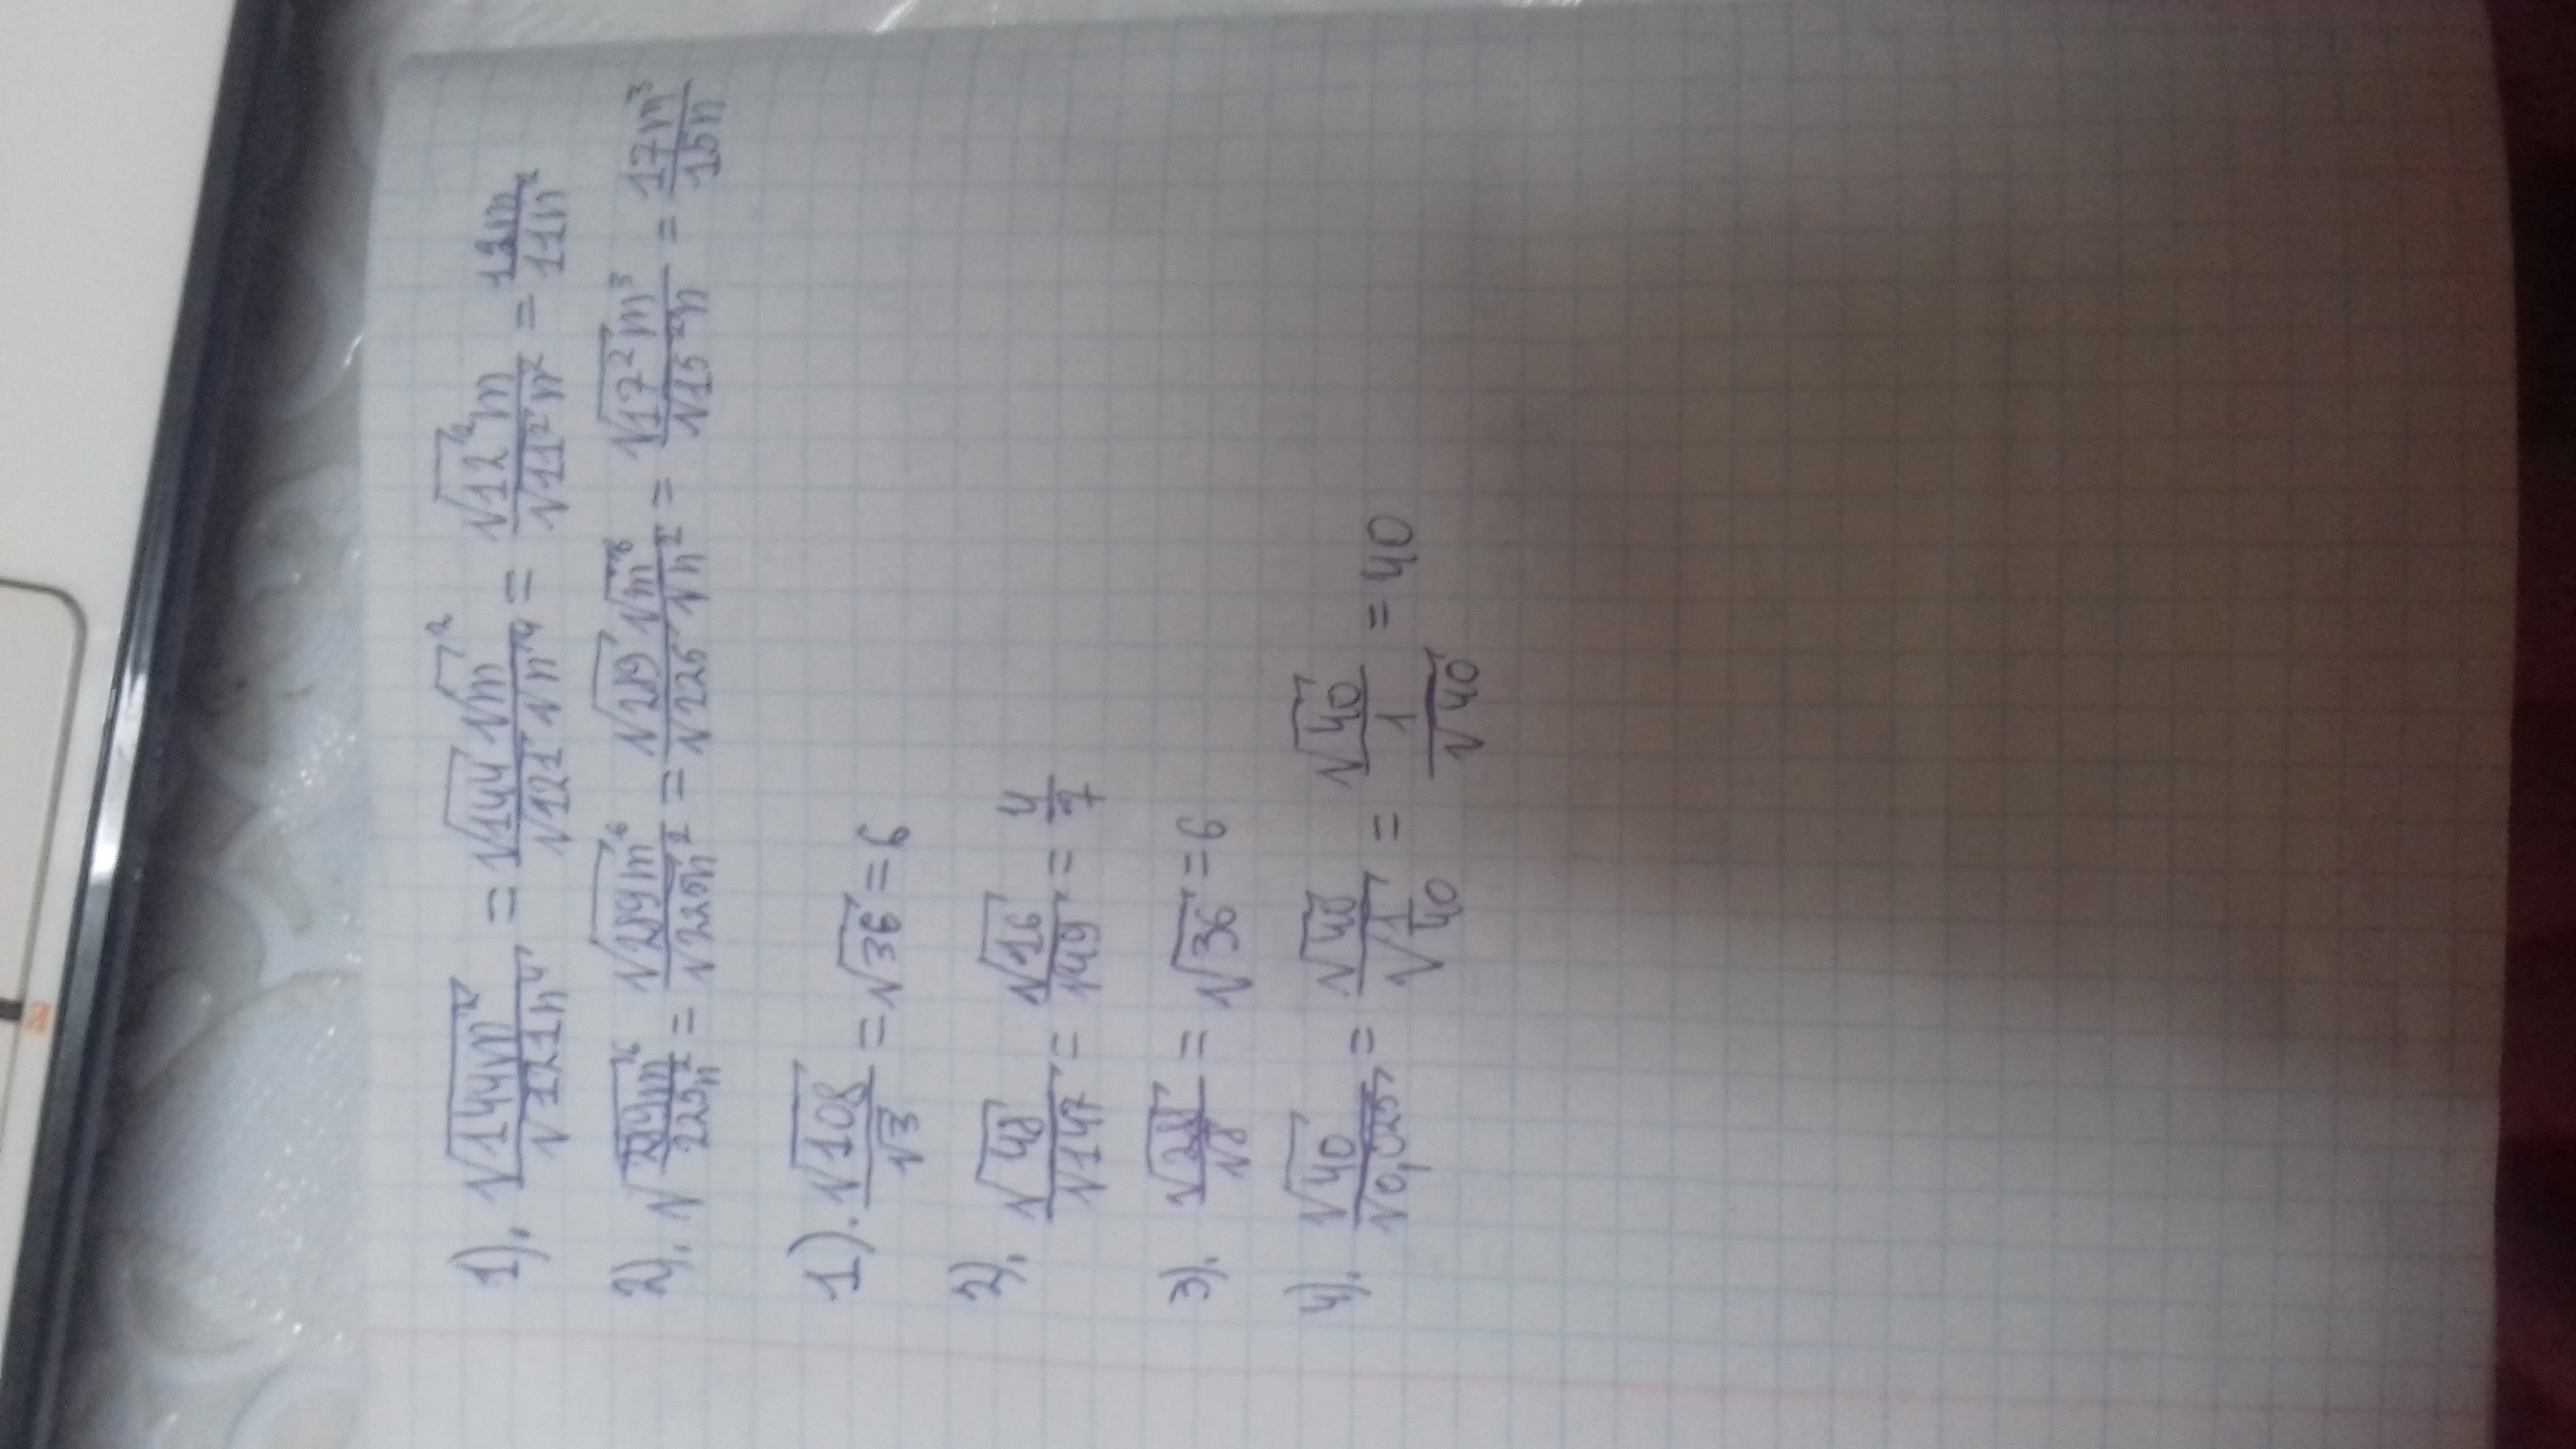 1). √144m²/√121n⁴ = √144 √m²/√121 √n⁴ = √12² m/√11² n² = 12m/11n²
2). √289m⁶/225n² = √289m⁶/√225n² = √289 √m⁶/√225 √n² = √17² m³/√15² n = 17m³/15n
1). √108/√3 = √36 = 6
2). √48/√147 = √16/√49 = 4/7
3). √288/√8 = √36 = 6
4). √40/√0,025 = √40/√1/40 = √40/1/√40 = 40